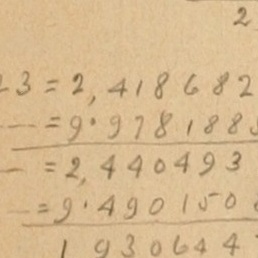 2
23 = 2,418682
— = 9.978188
— = 2,440493
— = 9.490150
1930644